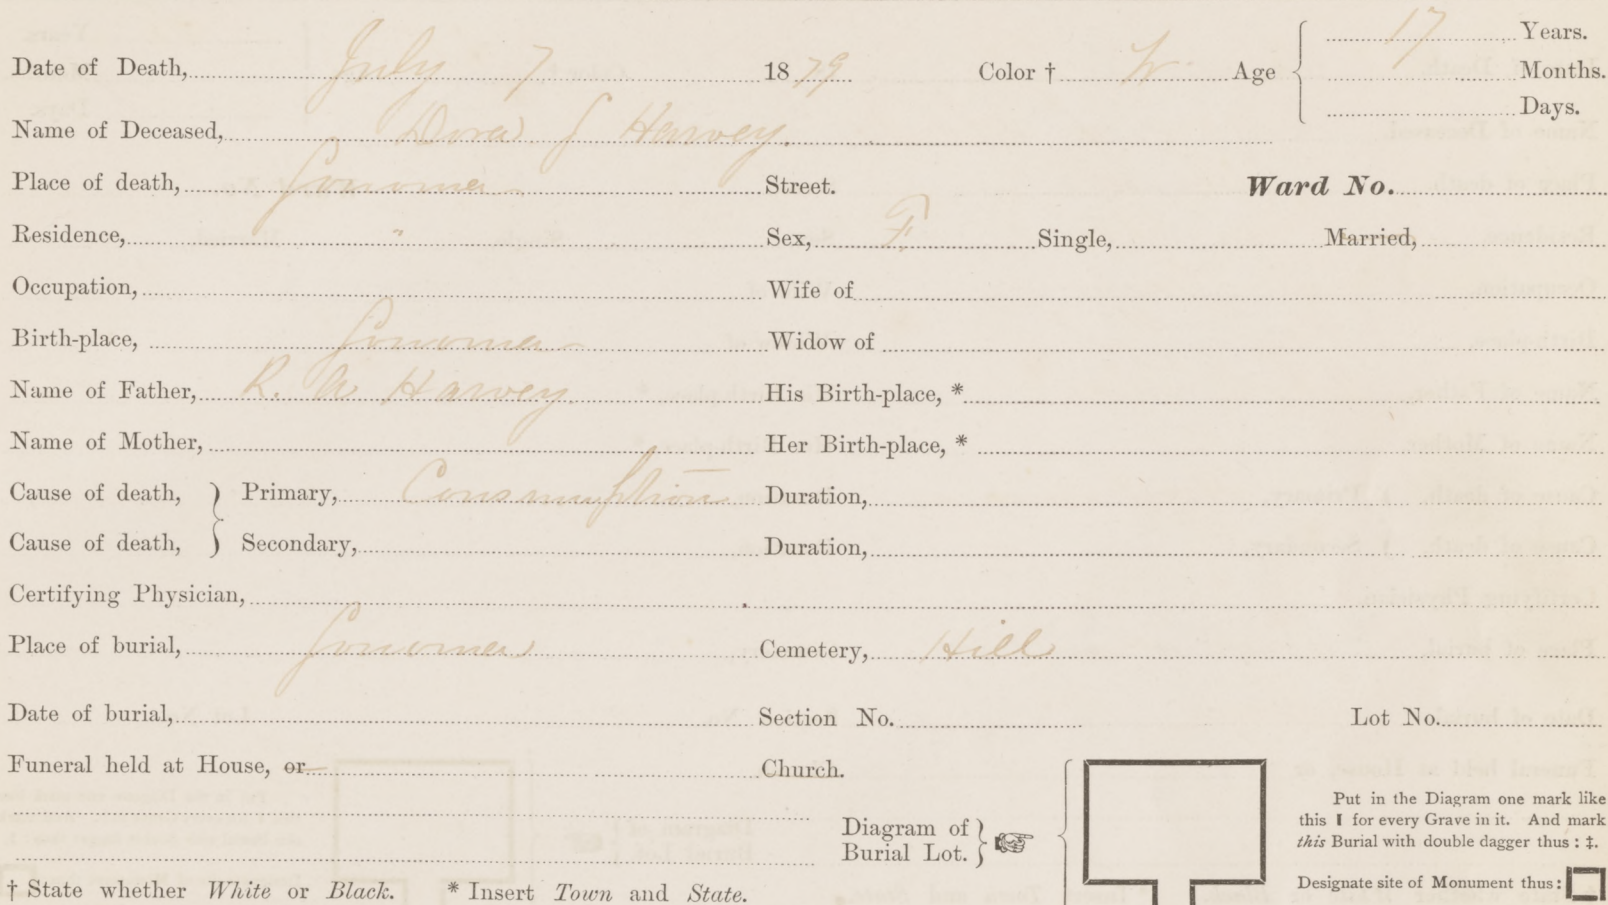 17 Years.
Date of Death, July 7 1879 Color † W. Age Months.
Days.
Name of Deceased, Dora J Harvey.
Place of death, Sonoma Street. Ward No.
Residence, " Sex, F. Single, Married,
Occupation, Wife of
Birth-place, Sonoma Widow of
Name of Father, R. A Harvey His Birth-place, *
Name of Mother, Her Birth-place, *
Cause of death, } Primary, Consumption Duration,
Cause of death, } Secondary, Duration,
Certifying Physician,
Place of burial, Sonoma Cemetery, Hill
Date of burial, Section No. Lot No.
Funeral held at House, or Church.
Put in the Diagram one mark like
this I for every Grave in it. And mark
this Burial with double dagger thus : ‡.
Diagram of
Burial Lot. } ☞
Designate site of Monument thus :
† State whether White or Black. * Insert Town and State.